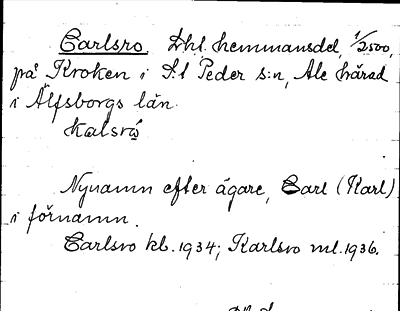 Carlsro. Dhl. hemmansdel, 1/2500,
på Kroken i S:t Peder s:n, Ale härad
i Älfsborgs län.
kalsró
Nynamn efter ägare, Carl (Karl)
i förnamn.
Carlsro kb. 1934; Karlsro ml. 1936.